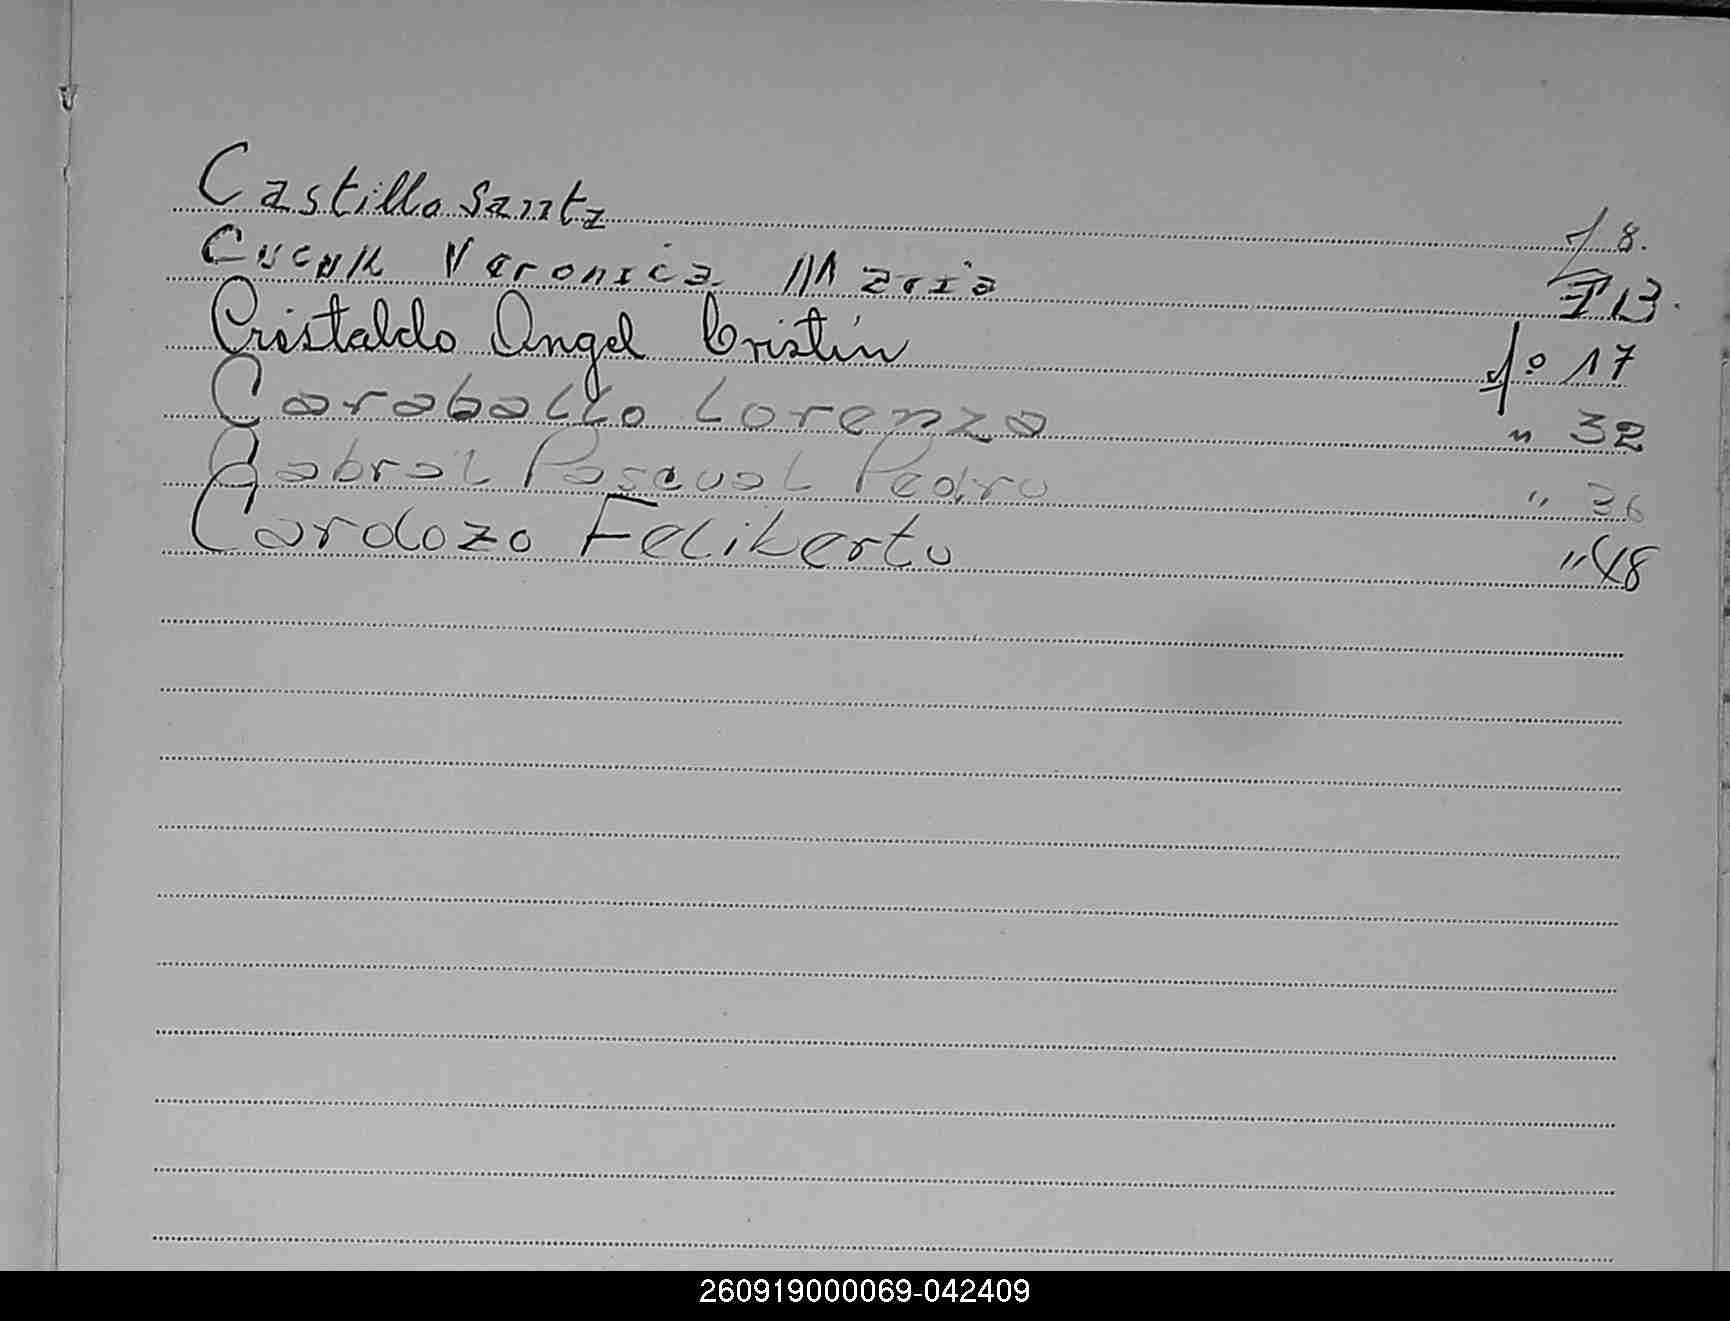 Castillo Santa f 8.
Veronica Maria F 13.
Cristaldo Angel Cristin fº 17
Caraballo Lorenzo " 32
Cabral Pascual Pedro " 36
Cardozo Feliberto " 48
260919000069-042409